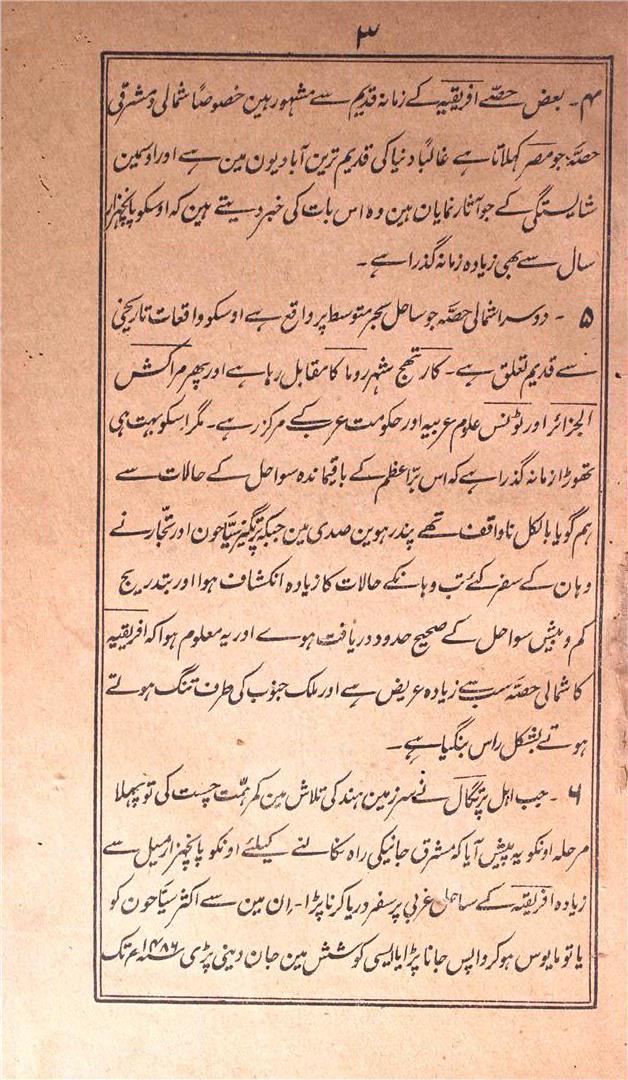 ۳
۴۔ بعض حصّے افریقیہ کے زمانہ قدیم سے مشہور ہین خصوصاً شمالی و مشرقی
حصّہ جو مصر کہلاتا ہے غالباً دنیا کی قدیم ترین آبادیون مین ہے اور اوسمین
شایستگی کے جو آثار نمایان ہین وہ اس بات کی خبر دیتے ہین کہ اوسکو پانچہزار
سال سے بھی زیادہ زمانہ گذرا ہے۔
۵ ۔ دوسرا شمالی حصّہ جو ساحل بحر متوسط پر واقع ہے اوسکو واقعات تاریخی
سے قدیم تعلق ہے۔ کارتھج مشہر روما کا مقابل رہا ہے اور پھر مراکش
الجزائر اور ٹونس علوم عربیہ اور حکومت عرب کے مرکز رہے۔ مگر اسکو بہت ہی
تھوڑا زمانہ گذرا ہے کہ اس برّ اعظم کے باقیماندہ سواحل کے حالات سے
ہم گویا بالکل ناواقف تھے پندرہوین صدی مین جبکہ پرتگیز سیّاحون اور تجّار نے
وہان کے سفر کئے تب وہانکے حالات کا زیادہ انکشاف ہوا اور بتدریج
کم و بیش سواحل کے صحیح حدود دریافت ہوے اور یہ معلوم ہوا کہ افریقیہ
کا شمالی حصّہ سب سے زیادہ عریض ہے اور ملک جنوب کی طرف تنگ ہوتے
ہوتے بشکل راس بنگیا ہے۔
۶ ۔ جب اہل پرتگال نے سرزمین ہند کی تلاش مین کمر ہمّت چست کی تو پہلا
مرحلہ اونکو یہ پیش آیا کہ مشرق جانیکی راہ نکالنے کیلئے اونکو پانچہزار میل سے
زیادہ افریقیہ کے ساحل غربی پر سفر دریا کرنا پڑا۔ ان مین سے اکثر سیّاحون کو
یا تو مایوس ہوکر واپس جانا پڑا یا ایسی کوشش مین جان دینی پڑی سنہ ۱۴۸۶ء تک